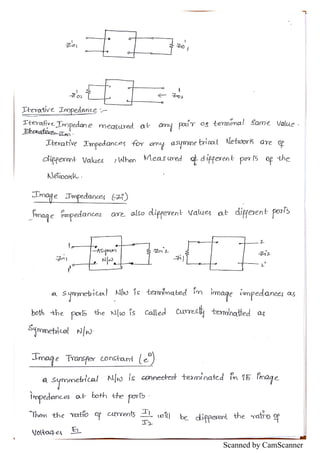 Zin1 Z01
Z01 Z02
Iterative Impedance :-
Iterative Impedane measured at any pair of terminal Same Value.
Iterative Impedances for any asymmetrical Network are of
different Values , When Measured at different ports of the
Network.
Image Impedances (Zi)
Image impedances are also different values at different ports
1 Asymm N/w Zin2 2
Zin1 1' Zi1 2' Zi2
a symmetrical N/w is terminated in image impedances as
both the ports the N/w is called currestly terminated as
Symmetrical N/w
Image Transfer constant (e^θ)
a symmetrical N/w is connected terminated in its image
impedances at both the ports
Then the ratio of currents I1/I2 will be different the ratio of
Voltages E1
Scanned by CamScanner